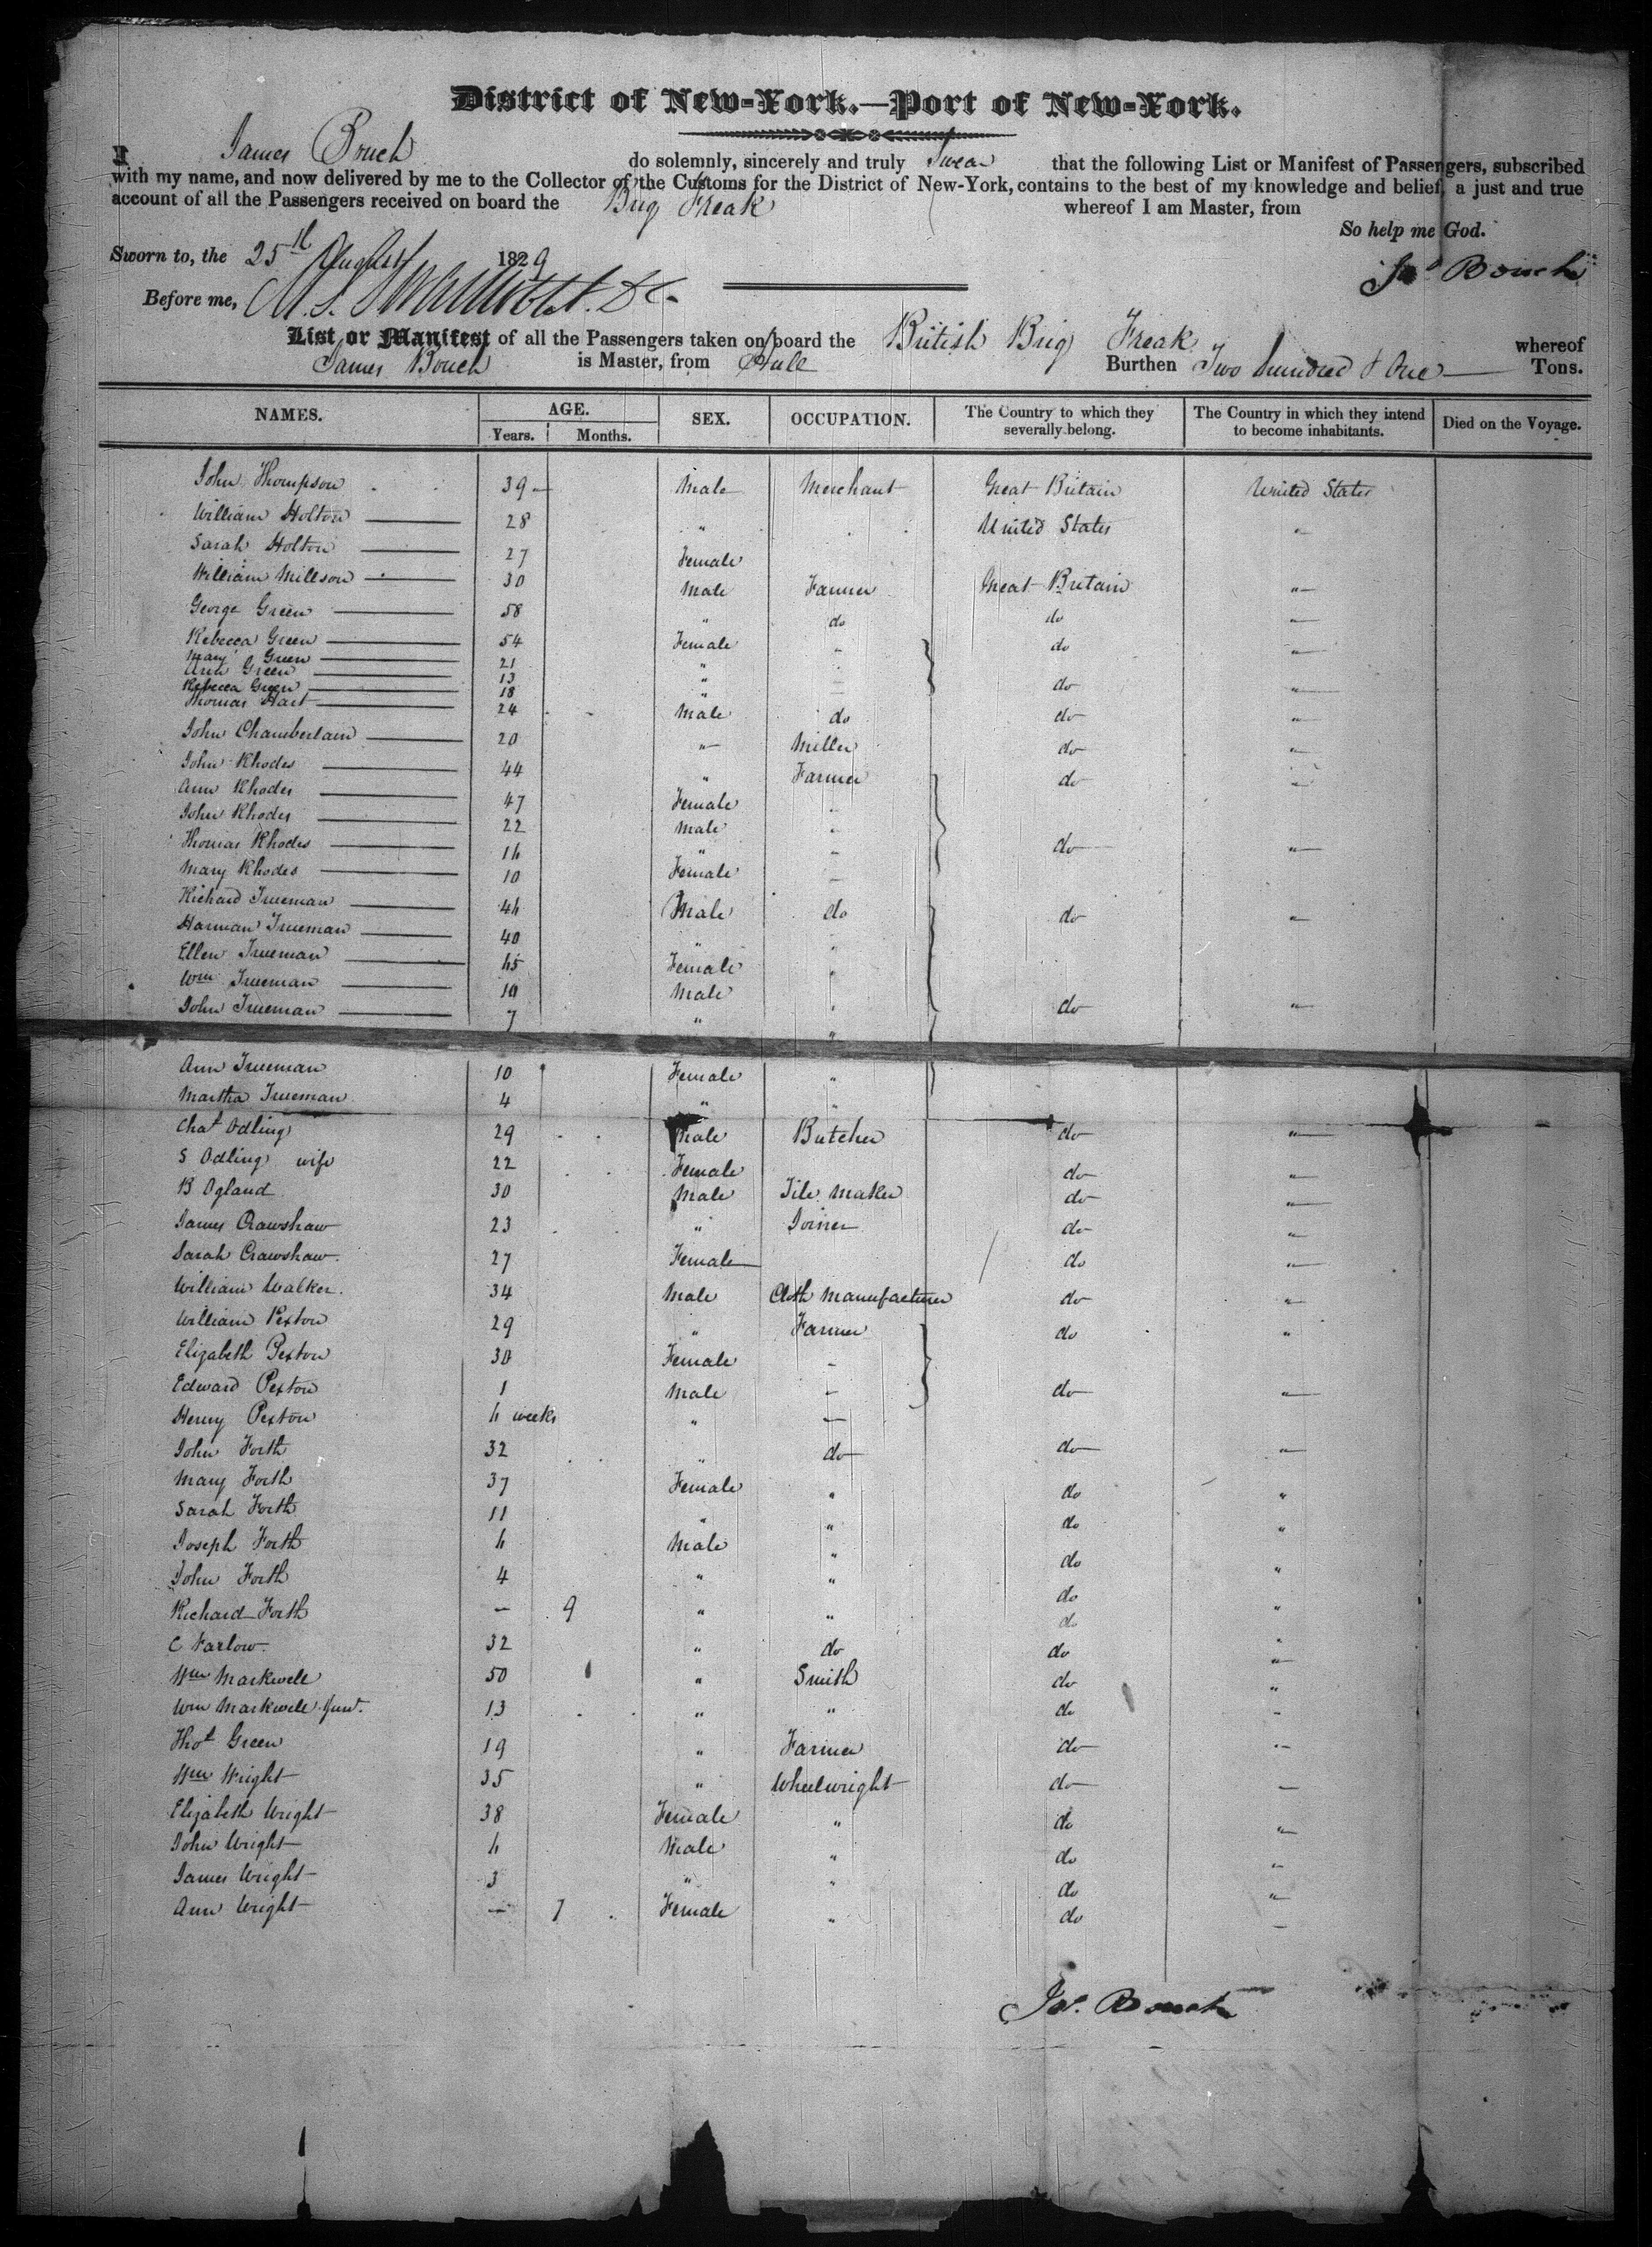 District of New-York.—Port of New-York.
I James Bouch do solemnly, sincerely and truly Swear that the following List or Manifest of Passengers, subscribed
with my name, and now delivered by me to the Collector of the Customs for the District of New-York, contains to the best of my knowledge and belief, a just and true
account of all the Passengers received on board the Brig Freak whereof I am Master, from
So help me God.
Sworn to, the 25th August 1829
Jas Bouch
Before me,
List or Manifest of all the Passengers taken on board the British Brig Freak whereof
James Bouch is Master, from Hull Burthen Two hundred & One Tons.
NAMES. AGE. SEX. OCCUPATION. The Country to which they severally belong. The Country in which they intend to become inhabitants. Died on the Voyage.
Years. Months.
John Thompson 39 Male Merchant Great Britain United States
William Holton 28 " United States "
Sarah Holton 27 Female
William Millson 30 Male Farmer Great Britain "
George Green 58 " do do "
Rebecca Green 54 Female " do "
Mary Green 21 "
Ann Green 13 "
Rebecca Green 18 " do "
Thomas Hart 24 Male do do "
John Chamberlain 20 " Miller do "
John Rhodes 44 " Farmer do "
Ann Rhodes 47 Female "
John Rhodes 22 Male "
Thomas Rhodes 16 " " do "
Mary Rhodes 10 Female
Richard Trueman 46 Male do do "
Harman Trueman 40 " "
Ellen Trueman 65 Female "
Wm Trueman 10 Male "
John Trueman 7 " " do "
Ann Trueman 10 Female "
Martha Trueman 4 " "
Chas Odling 29 Male Butcher do "
S Odling wife 22 Female do "
B Ogland 30 Male Tile Maker do "
James Crawshaw 23 " Joiner do "
Sarah Crawshaw. 27 Female do "
William Walker. 34 Male Cloth Manufacturer do "
William Pexton 29 " Farmer do "
Elizabeth Pexton 30 Female "
Edward Pexton 1 Male " do "
Henry Pexton 6 weeks " "
John Forth 32 " do do "
Mary Forth 37 Female " do "
Sarah Forth 11 " " do "
Joseph Forth 6 Male " do "
John Forth 4 " " do "
Richard Forth — 9 " " do "
C Farlow. 32 " do do "
Wm Markwell 50 " Smith do "
Wm Markwell Junr. 13 " " do "
Thos Green 19 " Farmer do "
Wm Wright 35 " Wheelwright do "
Elizabeth Wright 38 Female " do "
John Wright 6 Male " do "
James Wright 3 " " do "
Ann Wright — 7 Female " do "
Jas. Bouch